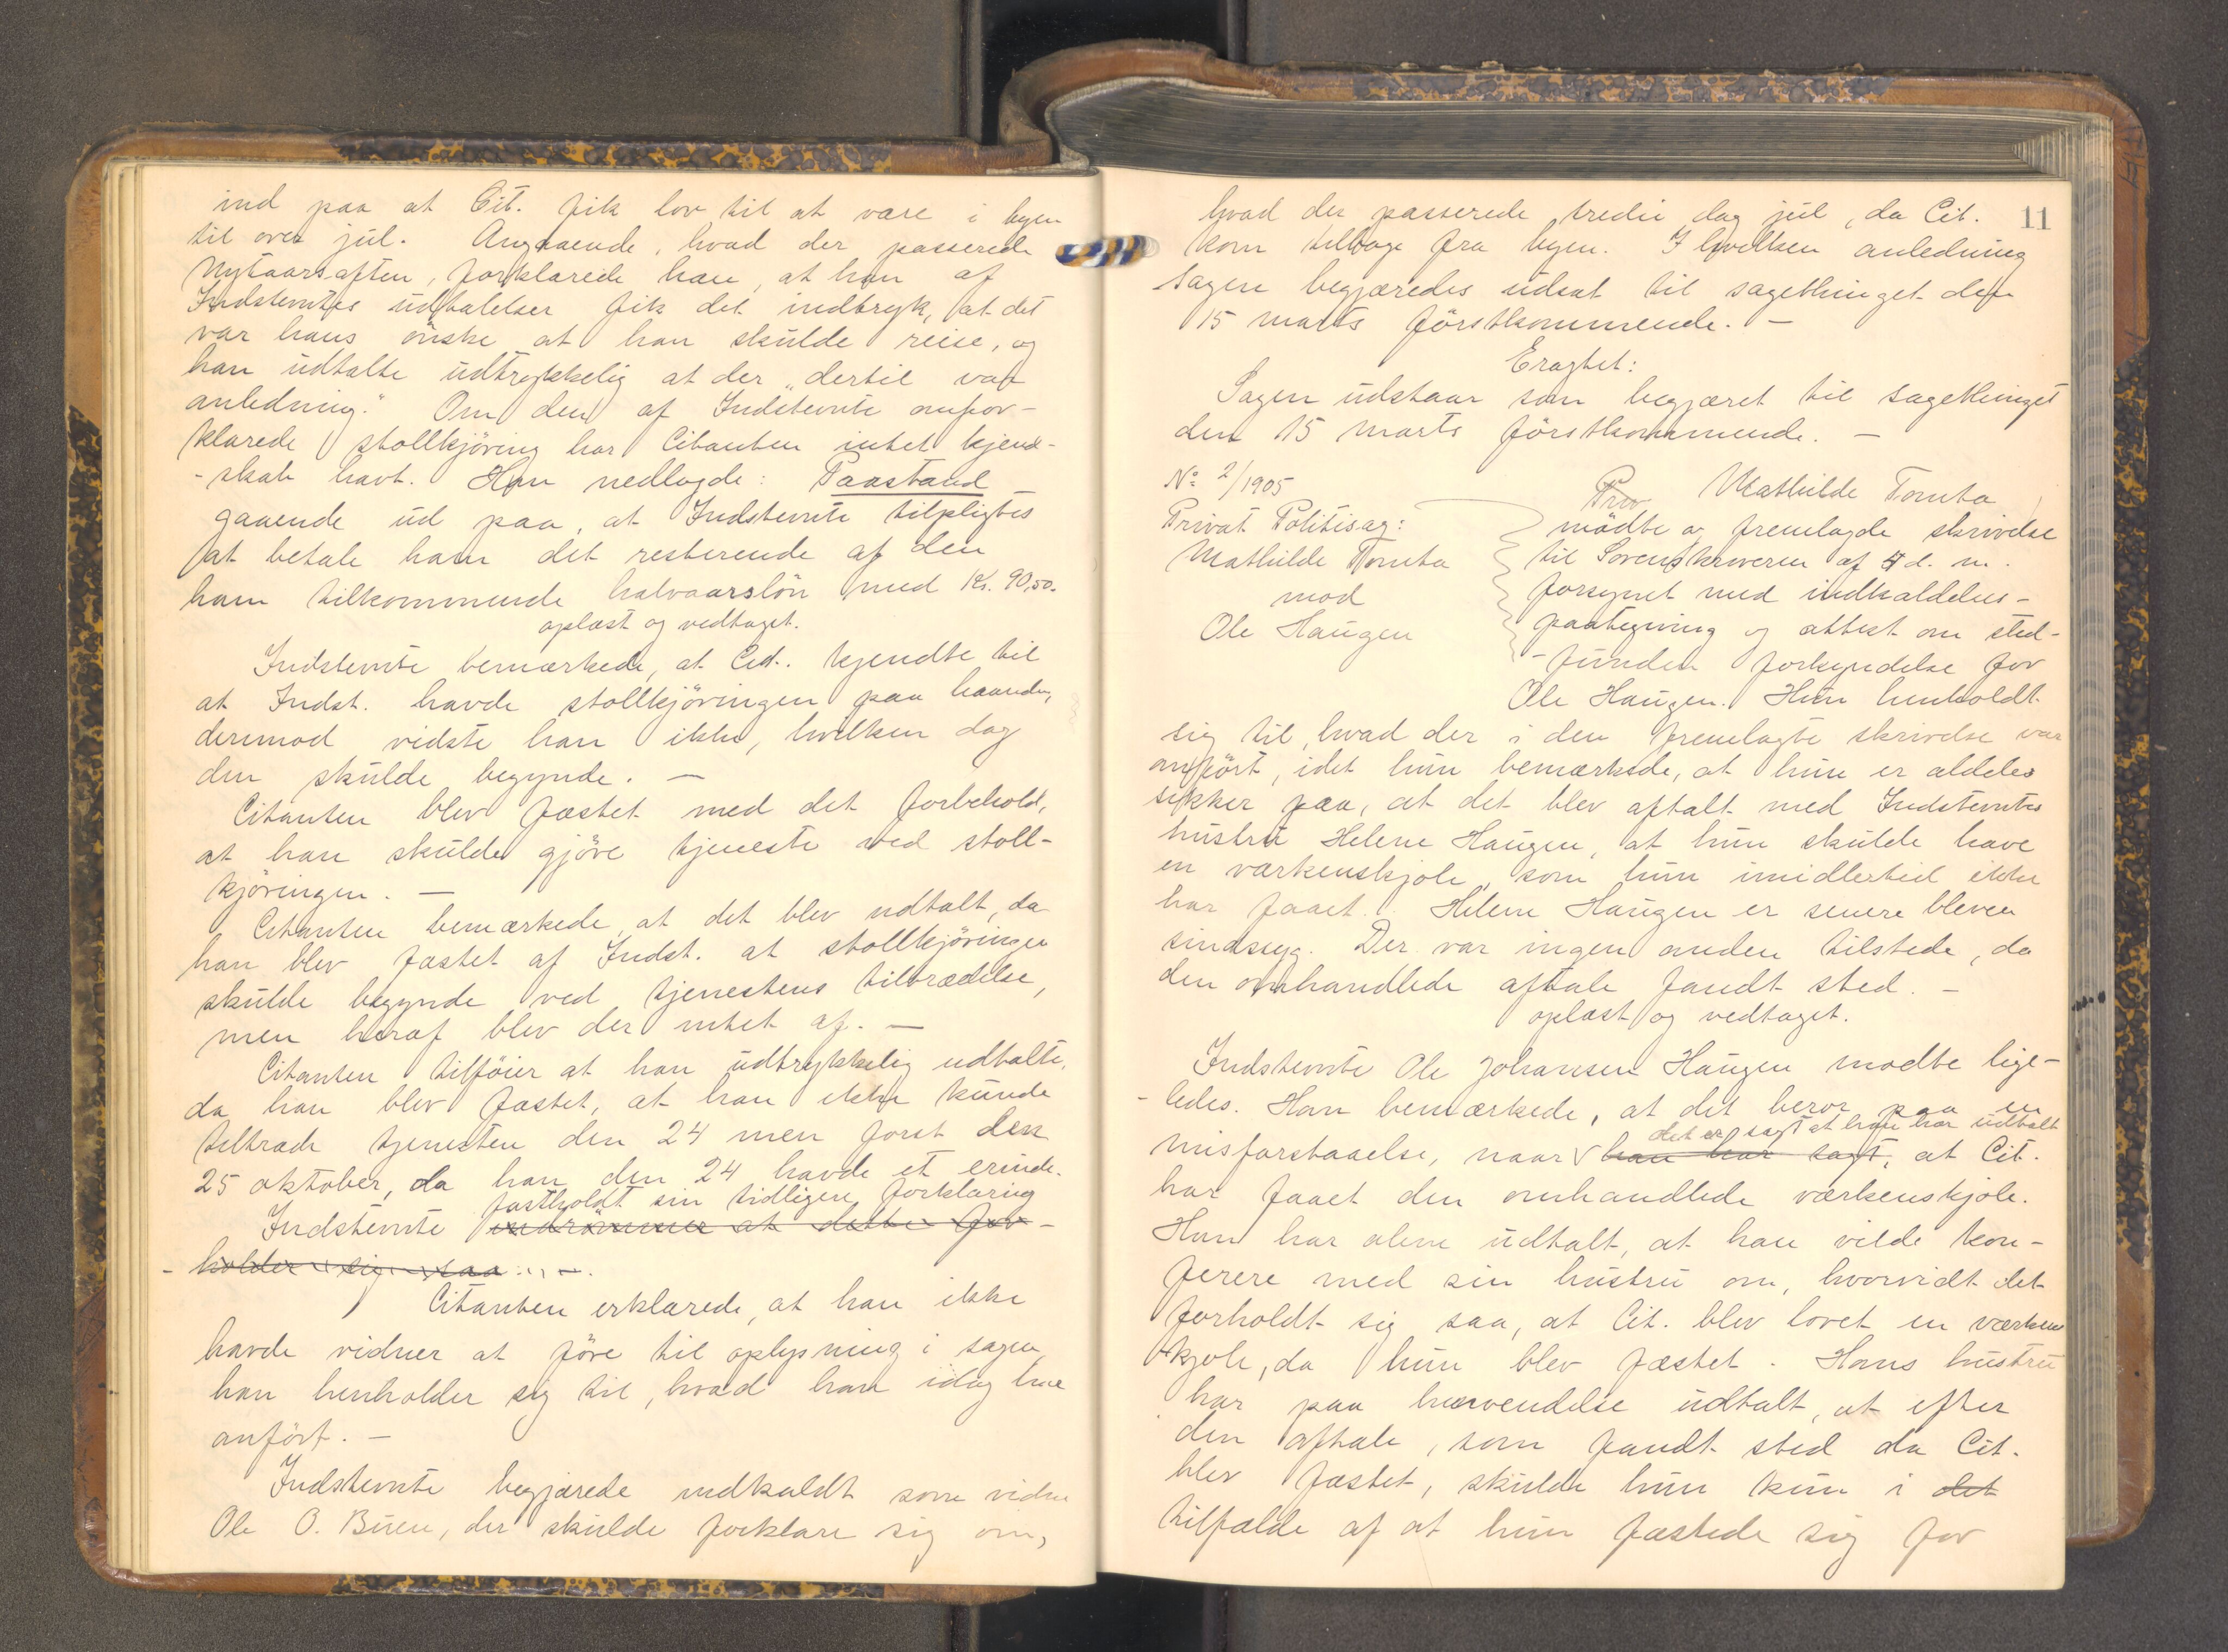 ind paa at Cit. fik lov til at være i byen
til over jul. Angaaende, hvad der passerede
Nytaarsaften, forklarede han, at han af
Indstevntes udtalelser fik det indtryk, at det
var hans ønske at han skulde reise, og
han udtalte udtrykkelig at der „dertil var
anledning." Om den af Indstevnte omfor-
klarede stollkjöring har Citanten intet kjend-
-skab havt. Han nedlagde: Paastand
gaaende ud paa, at Indstevnte tilpligtes
at betale ham det resterende af den
ham tilkommende halvaarslön med Kr. 90,50.
oplæst og vedtaget.
Indstevnte bemærkede, at Cit. kjendte til
at Indst. havde stollkjöringen paa haanden,
derimod vidste han ikke, hvilken dag
den skulde begynde. —
Citanten blev fæstet med det forbehold,
at han skulde gjöre tjeneste ved stoll-
kjöringen. —
Citanten bemærkede, at det blev udtalt, da
han blev fæstet af Indst. at stollkjöringen
skulde begynde ved tjenestens tiltrædelse,
men heraf blev der intet af. —
Citanten tilföier at han udtrykkelig udtalte,
da han blev fæstet, at han ikke kunde
tiltræde tjenesten den 24 men först den
25 oktober, da han den 24 havde et erinde.
fastholdt sin tidligere forklaring
Indstevnte indrömmer at dette for-
-holder sig saa. —
Citanten erklærede, at han ikke
havde vidner at före til oplysning i sagen,
han henholder sig til, hvad han idag har
anfört. —
Indstevnte begjærede indkaldt som vidne
Ole O. Buen, der skulde forklare sig om,
11
hvad der passerede tredie dag jul, da Cit.
kom tilbage fra byen. I hvilken anledning
sagen begjæredes udsat til sagethinget den
15 marts förstkommende. —
Eragtet:
Sagen udstaar som begjæret til sagethinget
den 15 marts förstkommende. —
No: 2/1905
Privat Politisag:
Mathilde Tomta
mod
Ole Haugen
Priv Mathilde Tomta
mödte og fremlagde skrivelse
til Sorenskriveren af 4 d. m.
forsynet med indkaldelses-
paategning og attest om sted-
-funden forkyndelse for
Ole Haugen. Hun henholdt
sig til, hvad der i den fremlagte skrivelse var
anfört, idet hun bemærkede, at hun er aldeles
sikker paa, at det blev aftalt med Indstevntes
hustru Helene Haugen, at hun skulde have
en værkenskjole, som hun imidlertid ikke
har faaet. Helene Haugen er senere bleven
sindssyg. Der var ingen anden tilstede, da
den omhandlede aftale fandt sted. —
oplæst og vedtaget.
Indstevnte Ole Johansen Haugen mödte lige-
-ledes. Han bemærkede, at det beror paa en
det er sagt at han har udtalt
misforstaaelse, naar han har sagt, at Cit.
har faaet den omhandlede værkenskjole.
Han har alene udtalt, at han vilde kon-
ferere med sin hustru om, hvorvidt det
forholdt sig saa, at Cit. blev lovet en værkens
kjole, da hun blev fæstet. Hans hustru
har paa henvendelse udtalt, at efter
den aftale, som fandt sted da Cit.
blev fæstet, skulde hun kun i det
tilfælde af at hun fæstede sig for